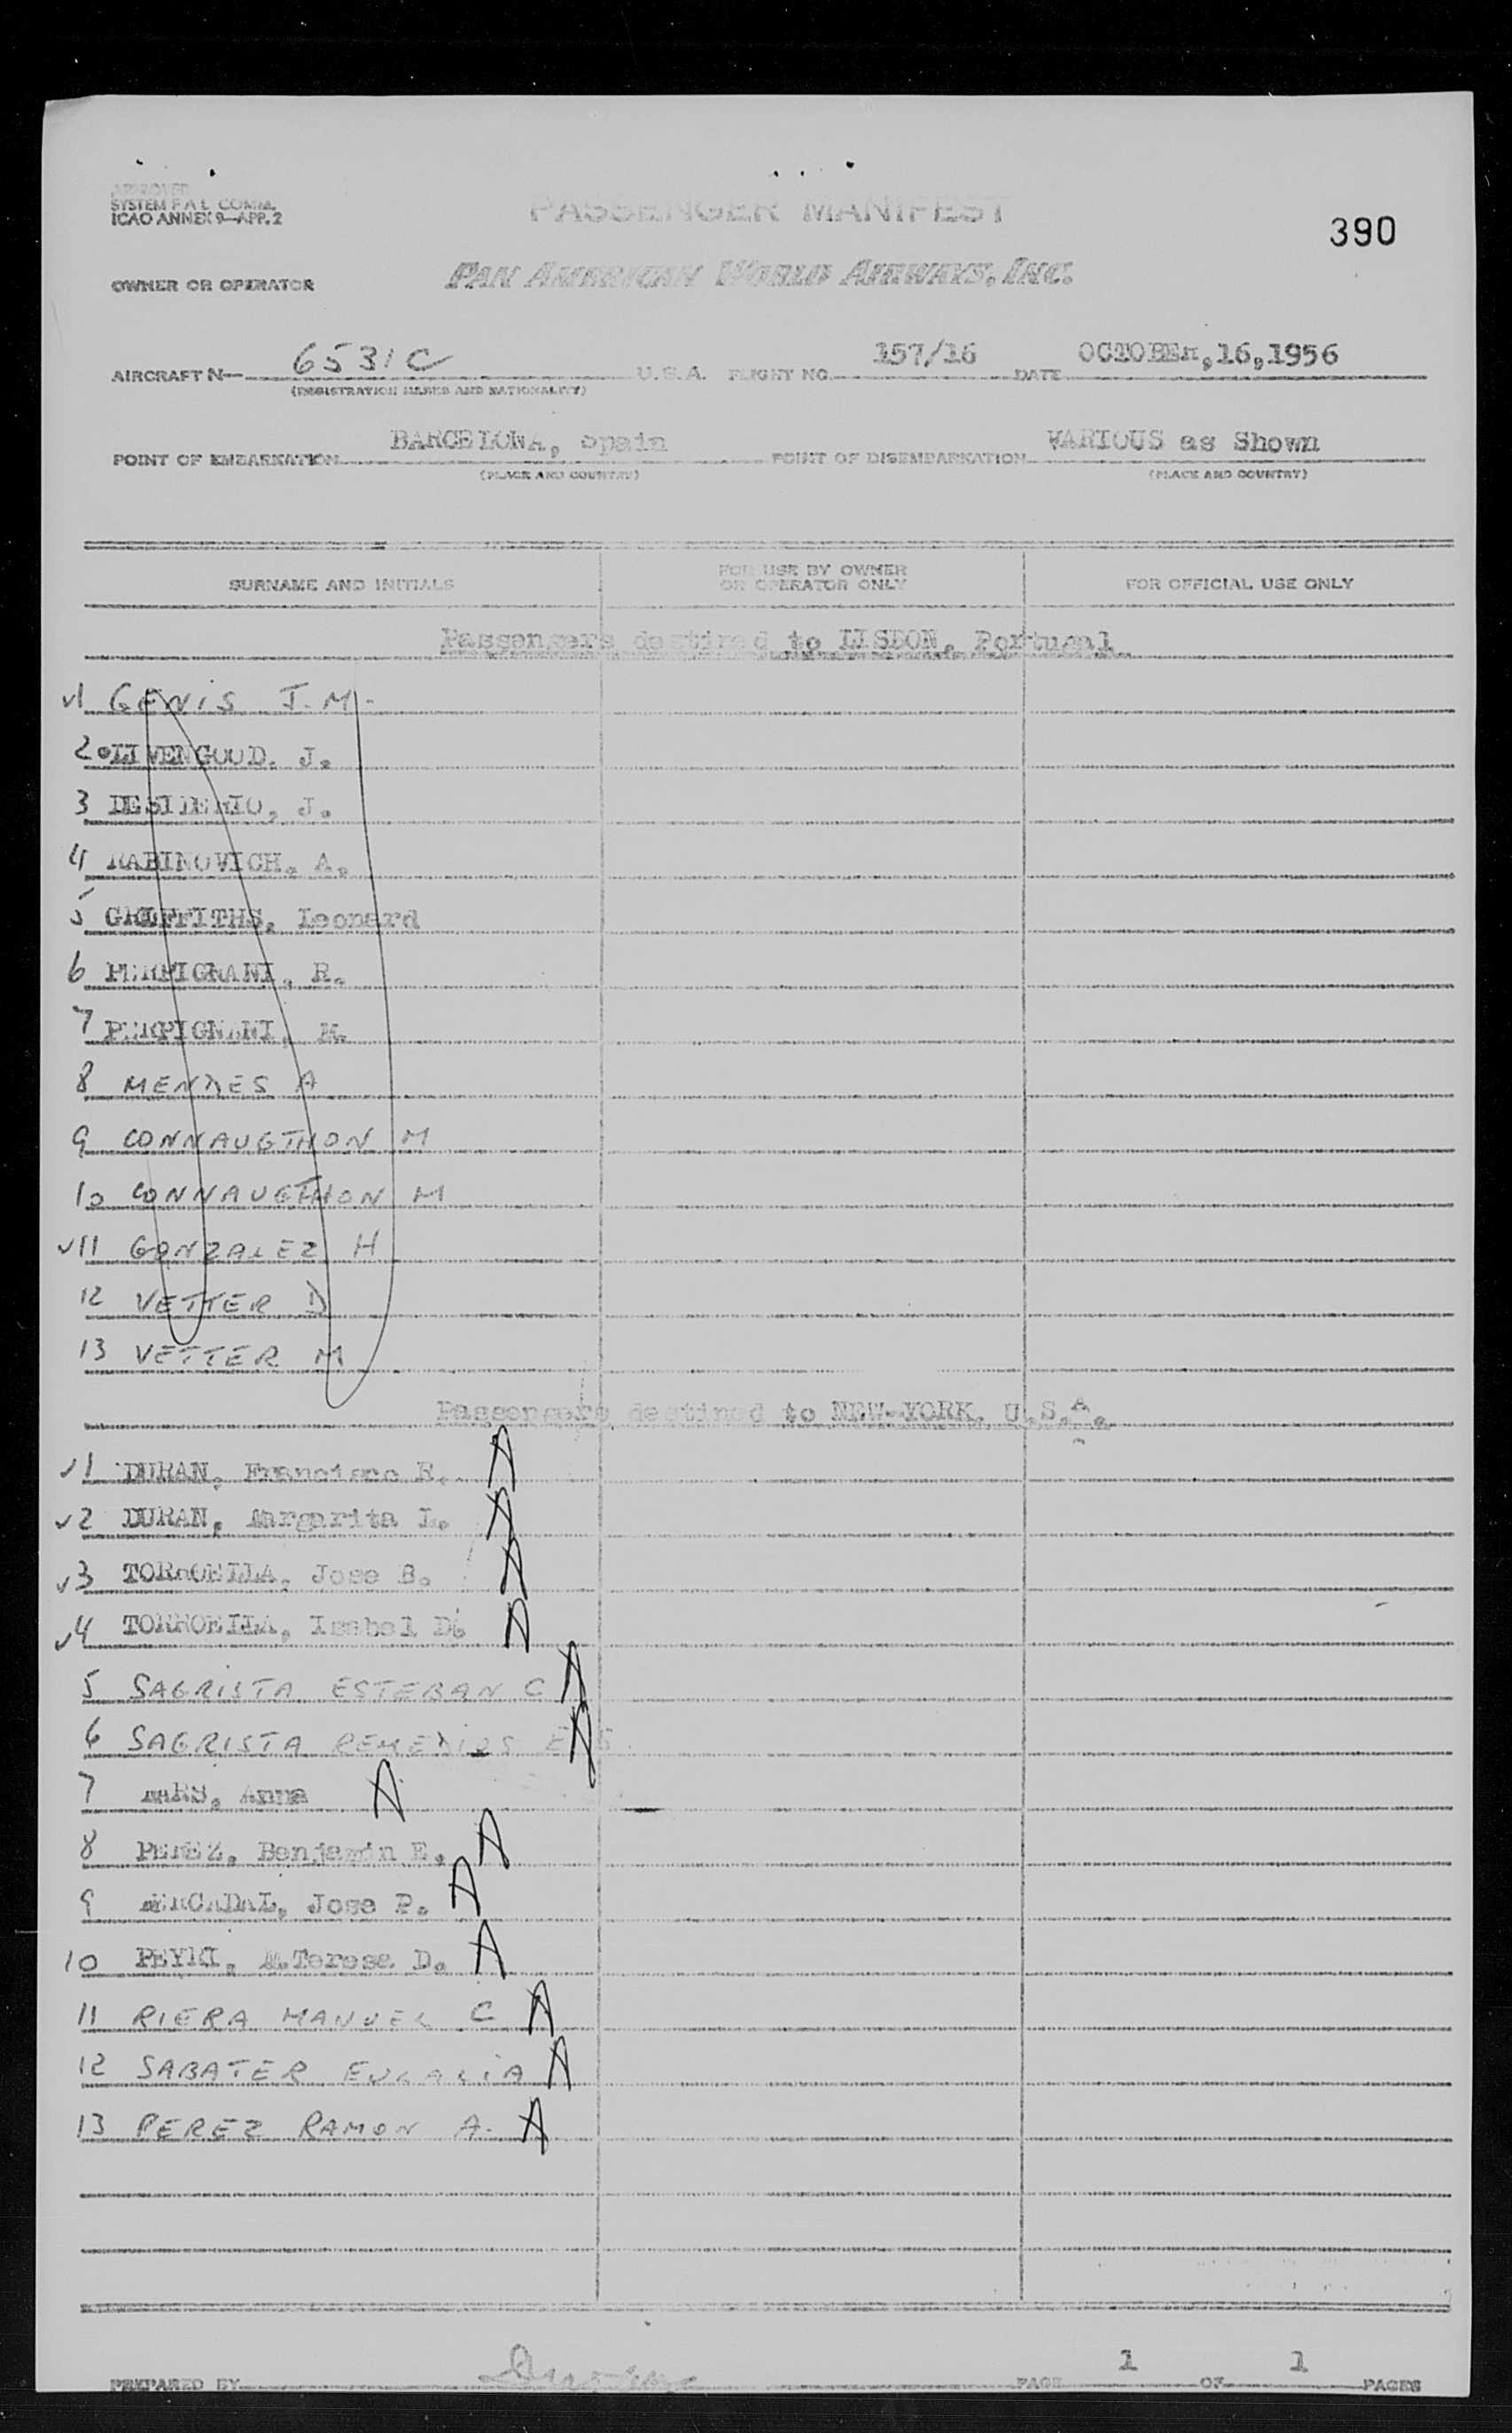 APPROVED
SYSTEM F A L COMM.
ICAO ANNEX 9—APP. 2
PASSENGER MANIFEST
390
OWNER OR OPERATOR PAN AMERICAN WORLD AIRWAYS, INC.
AIRCRAFT N— 6531C U.S.A. FLIGHT NO. 157/16 DATE OCTOBER,16,1956
(REGISTRATION MARKS AND NATIONALITY)
POINT OF EMBARKATION BARCELONA, Spain POINT OF DISEMBARKATION VARIOUS as Shown
(PLACE AND COUNTRY) (PLACE AND COUNTRY)
SURNAME AND INITIALS FOR USE BY OWNER OR OPERATOR ONLY FOR OFFICIAL USE ONLY
Passengers destined to LISBON, Portugal
✓1 GENIS J.M.
2 LIVENGOOD. J.
3 DESIDERIO, J.
4 RABINOVICH. A.
5 GRIFFITHS, Leonard
6 PERPIGNANI, R.
7 PERPIGNANI, M.
8 MENDES A
9 CONNAUGTHON M
10 CONNAUGTHON M
✓11 GONZALEZ H
12 VETTER D
13 VETTER M
Passengers destined to NEW-YORK, U.S.A.
✓1 DURAN, Francisco E. A
✓2 DURAN, Margarita L. A
✓3 TORROELLA, Jose B. A
✓4 TORROELLA, Isabel D. A
5 SAGRISTA ESTEBAN C A
6 SAGRISTA REMEDIOS E A
7 Anna A
8 PEREZ, Benjamin E. A
9 MERCADAL, Jose P. A
10 PEYRI, M.Teresa D. A
11 RIERA MANUEL C A
12 SABATER EULALIA A
13 PEREZ RAMON A. A
PREPARED BY PAGE 1 OF 1 PAGES